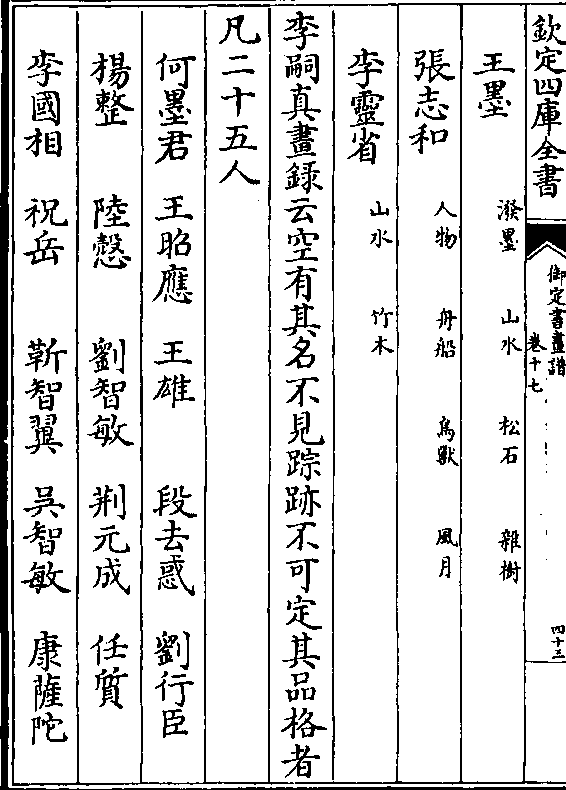 欽定四庫全書
御定書畫譜
卷十七
四十三
王墨 潑墨 山水 松石 雜樹
張志和 人物 舟船 鳥獸 風月
李靈省 山水 竹木
李嗣真畫録云空有其名不見踪跡不可定其品格者
凡二十五人
何墨君 王昭應 王雄 段去惑 劉行臣
楊整 陸慤 劉智敏 荆元成 任質
李國相 祝岳 靳智翼 吳智敏 康薩陀